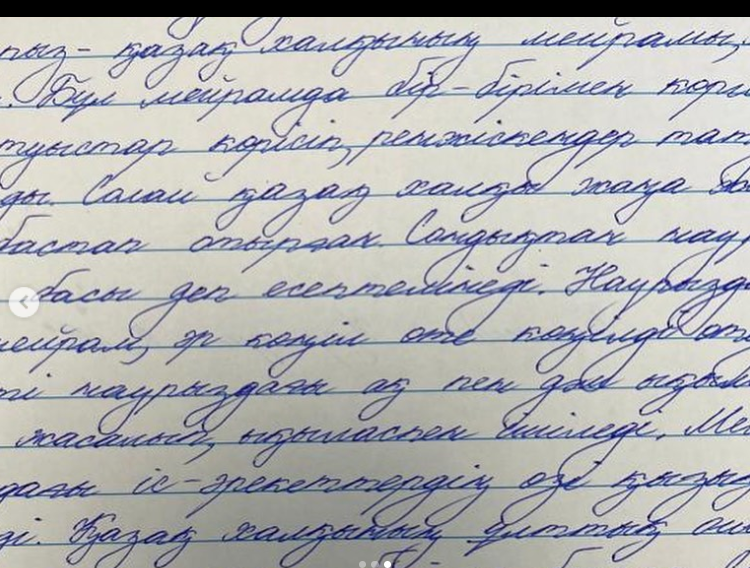 пыз- қазақ халқының мейрамы,
. Бұл мейрамда бір-бірімен көрі
туыстар көрісіп, ренжіскендер тат
ды. Солай қазақ халқы жаңа
бастап отырған. Сондықтан наур
басы деп есептелінеді. Наурызд
мейрам, әр көңіл өте көңілді өт
ті наурыздағы ақ пен дәм ықыл
жасалып, ықыласпен ішіледі. Ме
дағы іс-әрекеттердің өзі қызық
ді. Қазақ халқының ұлттық ой